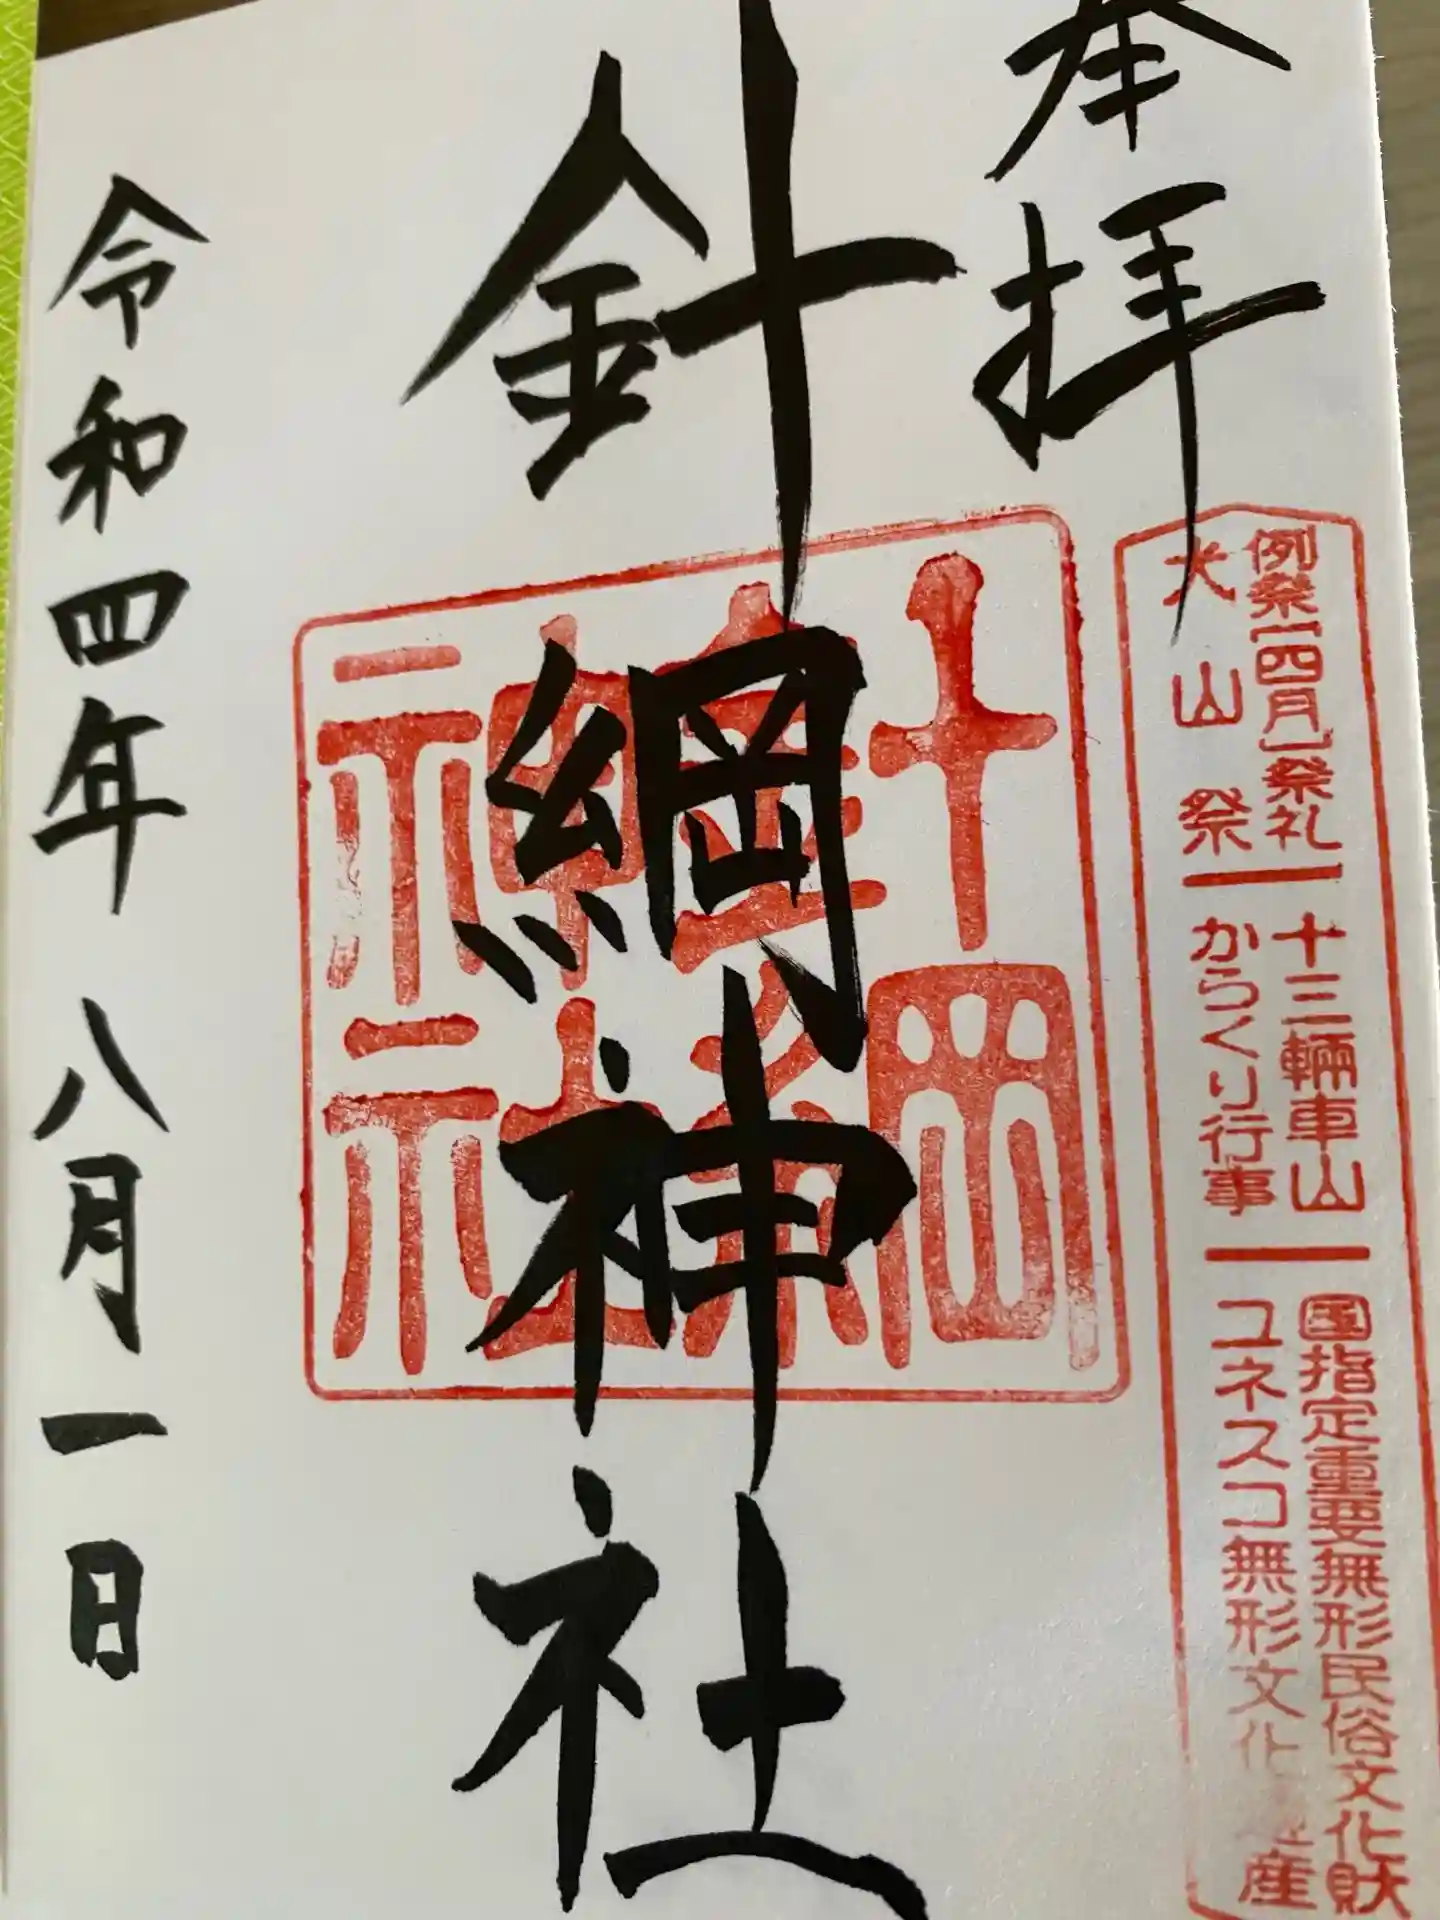 奉拝
針綱神社
令和四年 八月一日
例祭【四月】祭礼
犬山祭
十三輛車山
からくり行事
国指定重要無形民俗文化財
ユネスコ無形文化遺産
針綱神社